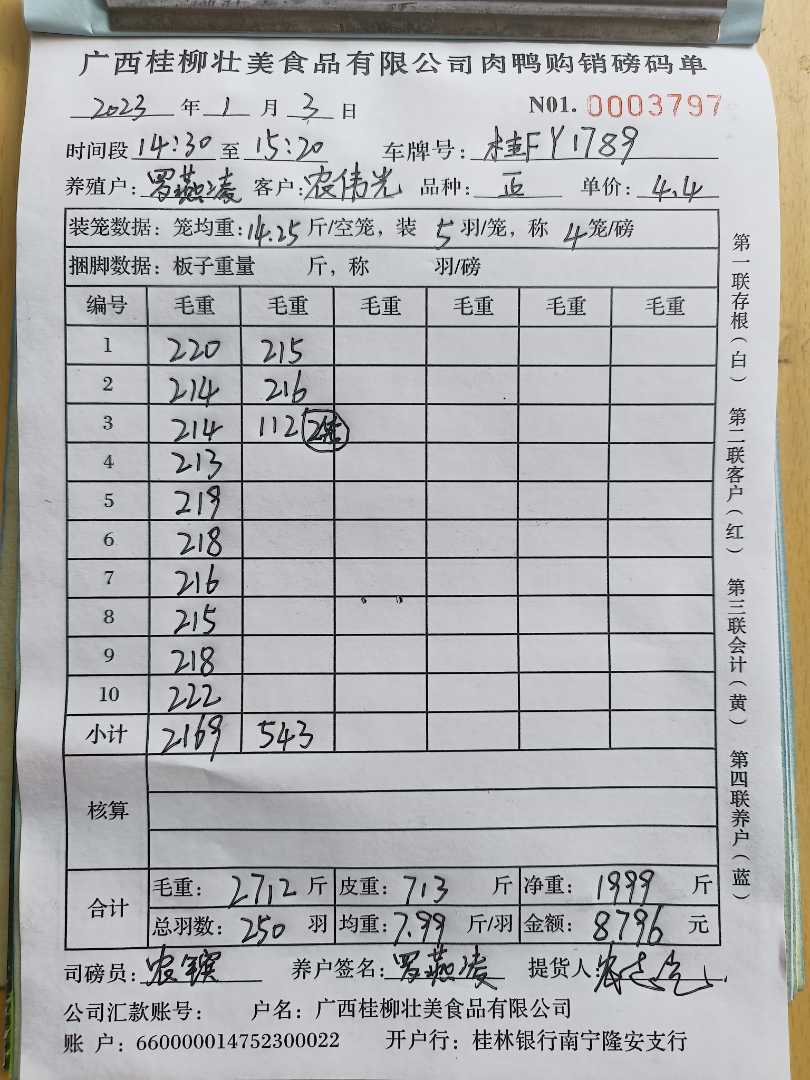 广西桂柳壮美食品有限公司肉鸭购销磅码单
2023 年 1 月 3 日 N01. 0003797
时间段 14:30 至 15:20 车牌号: 桂FY1789
养殖户: 罗燕凌 客户: 农伟光 品种: 正 单价: 4.4
装笼数据: 笼均重: 14.25 斤/空笼, 装 5 羽/笼, 称 4 笼/磅
捆脚数据: 板子重量 斤, 称 羽/磅
编号 毛重 毛重 毛重 毛重 毛重 毛重
1 220 215
2 214 216
3 214 112 2笼
4 213
5 219
6 218
7 216
8 215
9 218
10 222
小计 2169 543
核算
合计
毛重: 2712 斤 皮重: 713 斤 净重: 1999 斤
总羽数: 250 羽 均重: 7.99 斤/羽 金额: 8796 元
司磅员: 养户签名: 罗燕凌 提货人:
公司汇款账号: 户名: 广西桂柳壮美食品有限公司
账 户: 660000014752300022 开户行: 桂林银行南宁隆安支行
第一联存根(白) 第二联客户(红) 第三联会计(黄) 第四联养户(蓝)